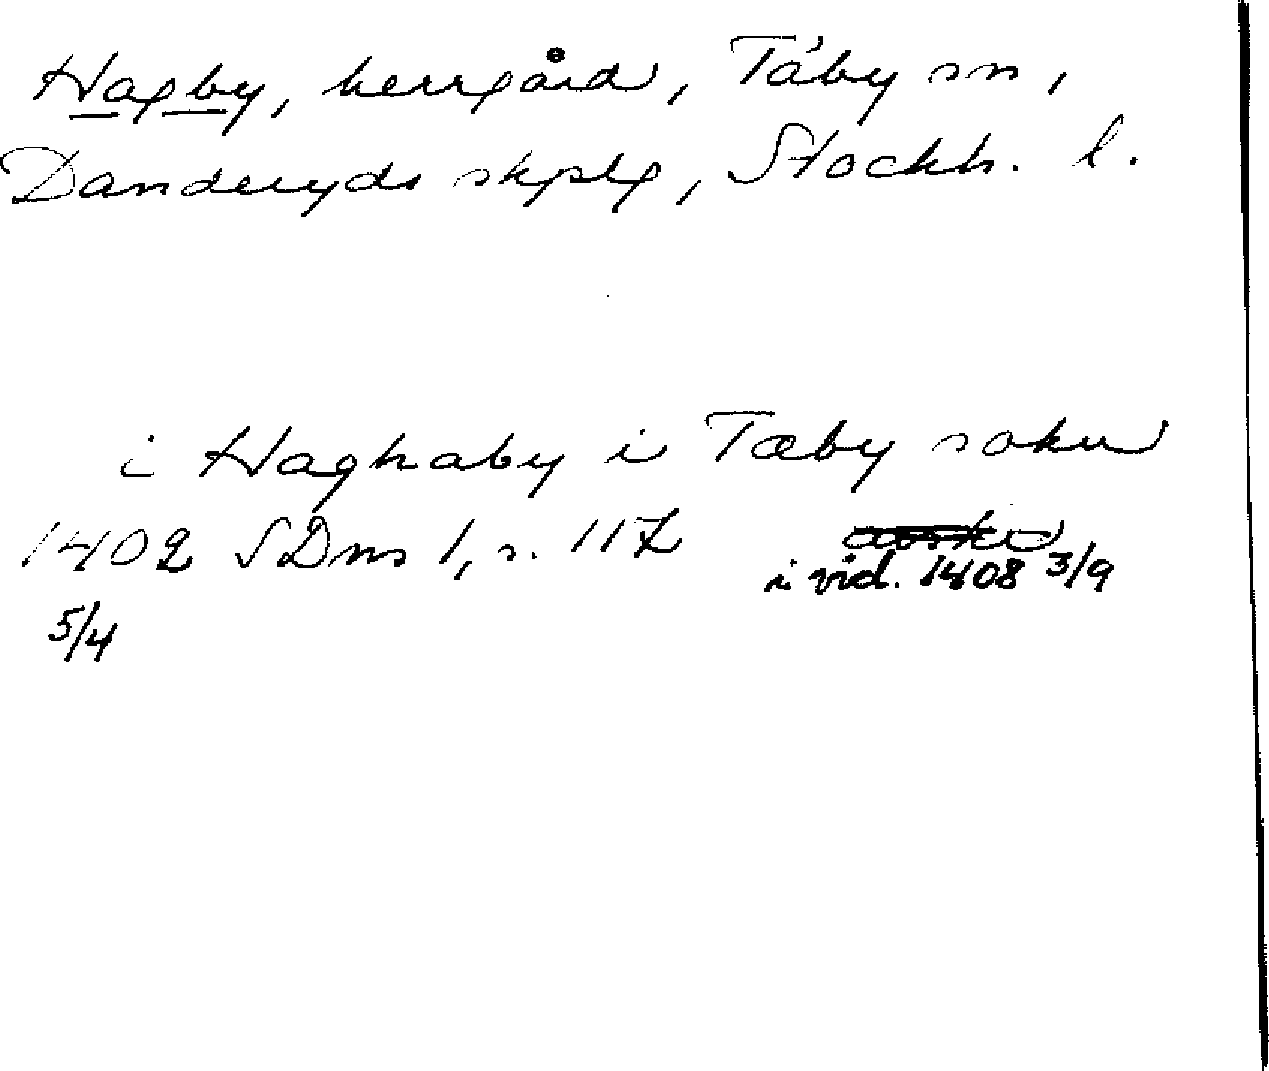 Hagby, herrgård, Täby sn,
Danderyds skplg, Stockh. l.
i Haghaby i Tæby sokn
1402 SDns 1, s. 117
i vid. 1408 3/9
5/4